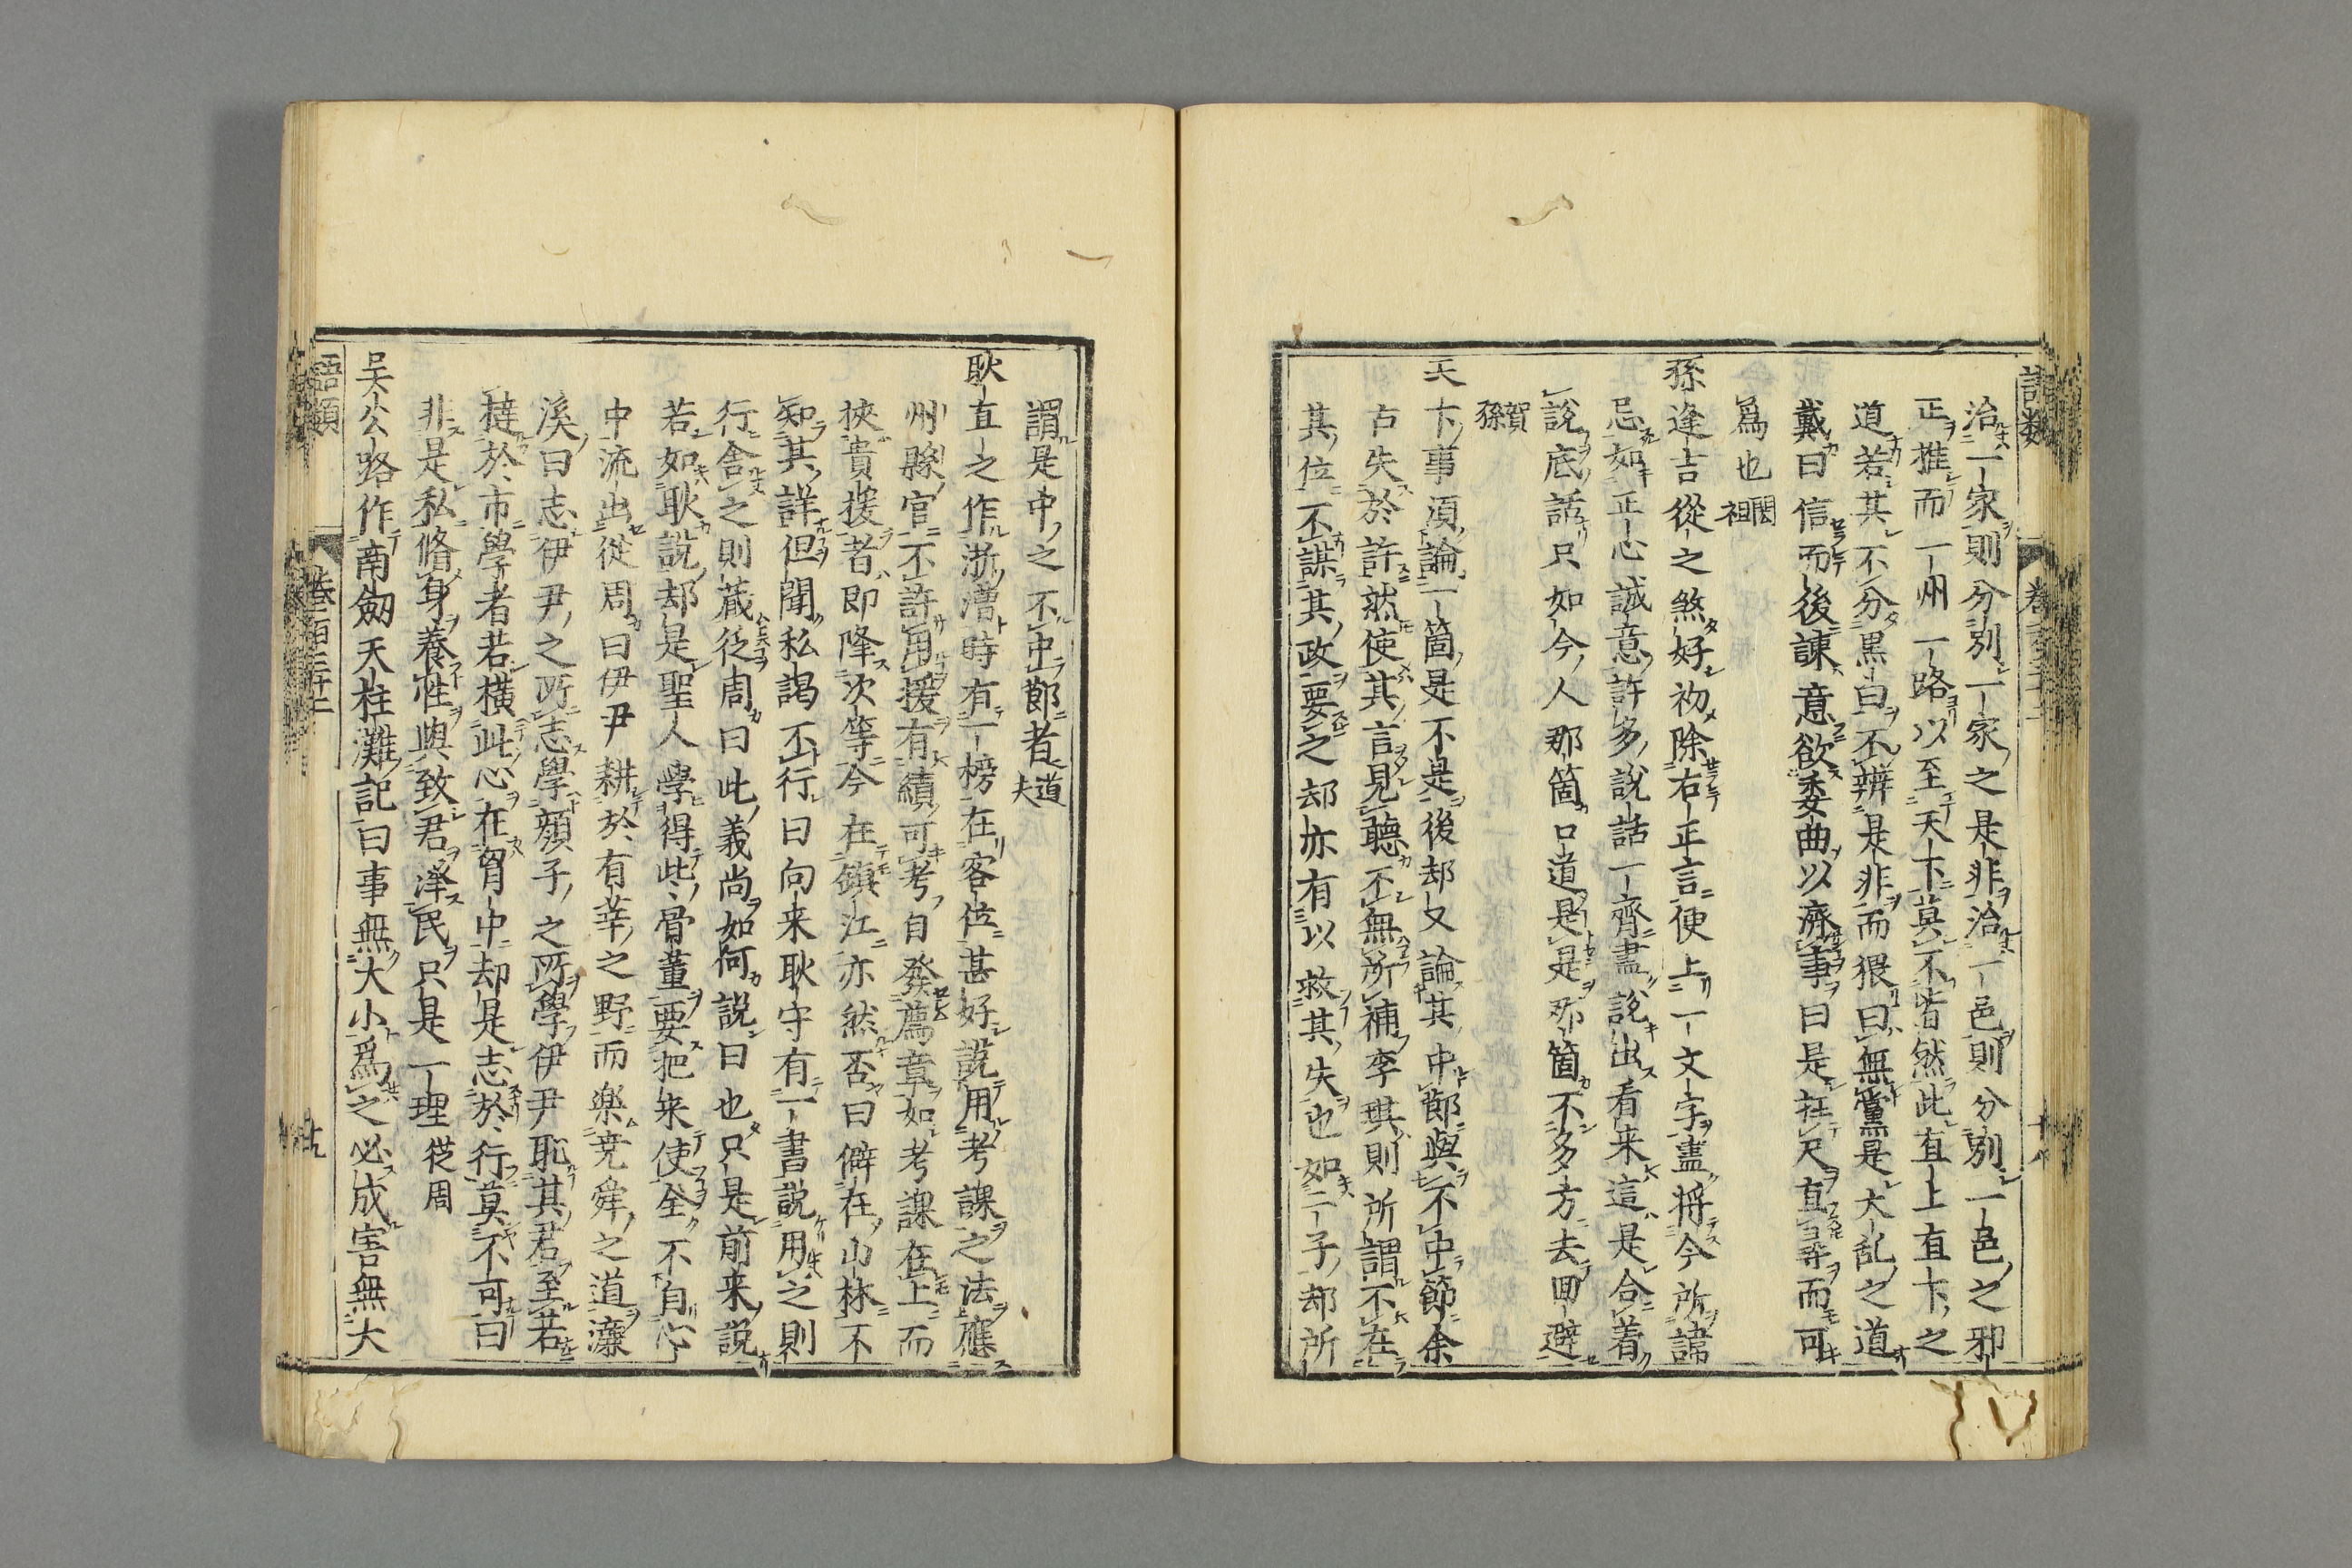 治一家則分別一家之是非治一邑則分別一邑之邪
正推而一州一路以至天下莫不皆然此直上直下之
道若其不分黒白不辨是非而猥曰無黨是大乱之道
戴曰信而後諌意欲委曲以済事曰是枉尺直尋而可
爲也 閎祖
孫逢吉從之煞好初除右正言便上一文字盡將今所諱
忌如正心誠意許多說話一齊盡說出看来這是合着
說底話只如今人那箇口道是是那箇不多方去囬避
賀孫
天下事須論一箇是不是後却又論其中節與不中節余
古失於許然使其言見聽不無所補李琪則所謂不在
其位不謀其政要之却亦有以救其失也如二子却所
謂是中之不中節者 道夫
耿直之作浙漕時有一榜在客位甚好說用考課之法應
州縣官不許用援有績可考自發薦章如考課在上而
挾貴援者即降次等今在鎮江亦然否曰僻在山林不
知其詳但聞私謁不行曰向来耿守有一書説用之則
行舎之則蔵從周曰此義尚如何説曰也只是前来説
若如耿說却是聖人學得此骨董要把来使全不自心
中流出從周曰伊尹耕於有莘之野而楽尭舜之道濂
溪曰志伊尹之所志學顔子之所學伊尹耻其君至若
撻於市學者若横此心在胷中却是志於行莫不可曰
非是私脩身養性與致君澤民只是一理 從周
吴公路作南劔天柱灘記曰事無大小爲之必成害無大
語類 卷百三十二 十九